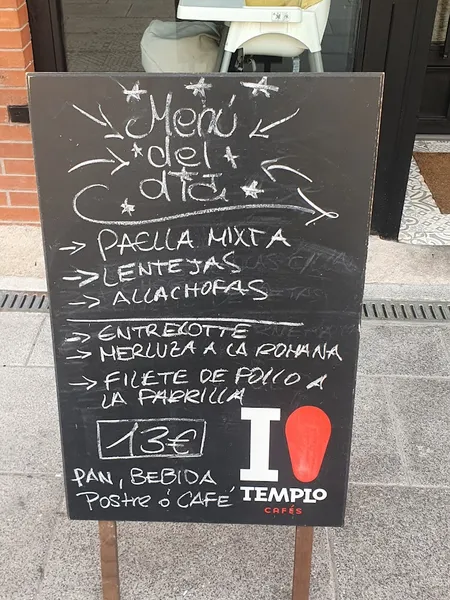 Menú
del
día
→ PAELLA MIXTA
→ LENTEJAS
→ ALLACHOFAS
→ ENTRECOTTE
→ MERLUZA A LA ROMANA
→ FILETE DE POLLO A
LA PARRILLA
13€
PAN, BEBIDA
Postre ó CAFÉ
I
TEMPLO
CAFÉS